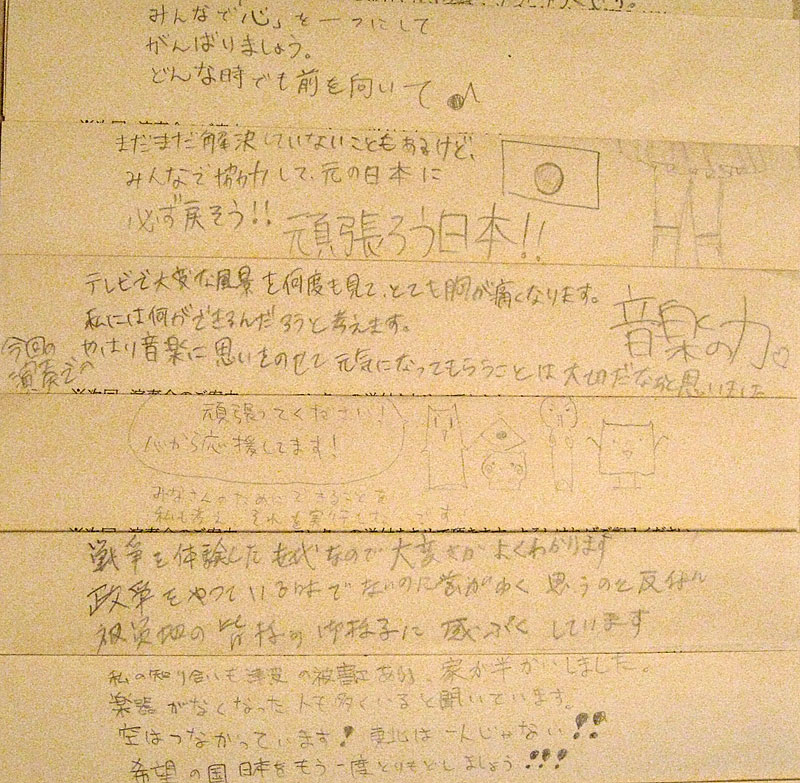 みんなで「心」を一つにして
がんばりましょう。
どんな時でも前を向いて♪
まだまだ解決していないこともあるけど、
みんなで協力して、元の日本に
必ず戻そう!!
頑張ろう日本!!
テレビで大変な風景を何度も見て、とても胸が痛くなります。
私には何ができるんだろうと考えます。
今回の演奏で
やはり音楽に思いをのせて元気になってもらうことは大切だなぁと思いました
音楽の力♡
頑張ってください!
心から応援してます!
みなさんのためにできることを
私も考え、それを実行したいです
戦争を体験した
なので大変さがよくわかります
政争をやっている時でないのに
思うのと反
被災地の皆様の御様子に感ぷくしています
私の知り合いも
の被害にあい、家が半かいしました。
楽器がなくなった人も多くいると聞いています。
空はつながっています!東北は一人じゃない!!
希望の国日本をもう一度とりもどしましょう!!!